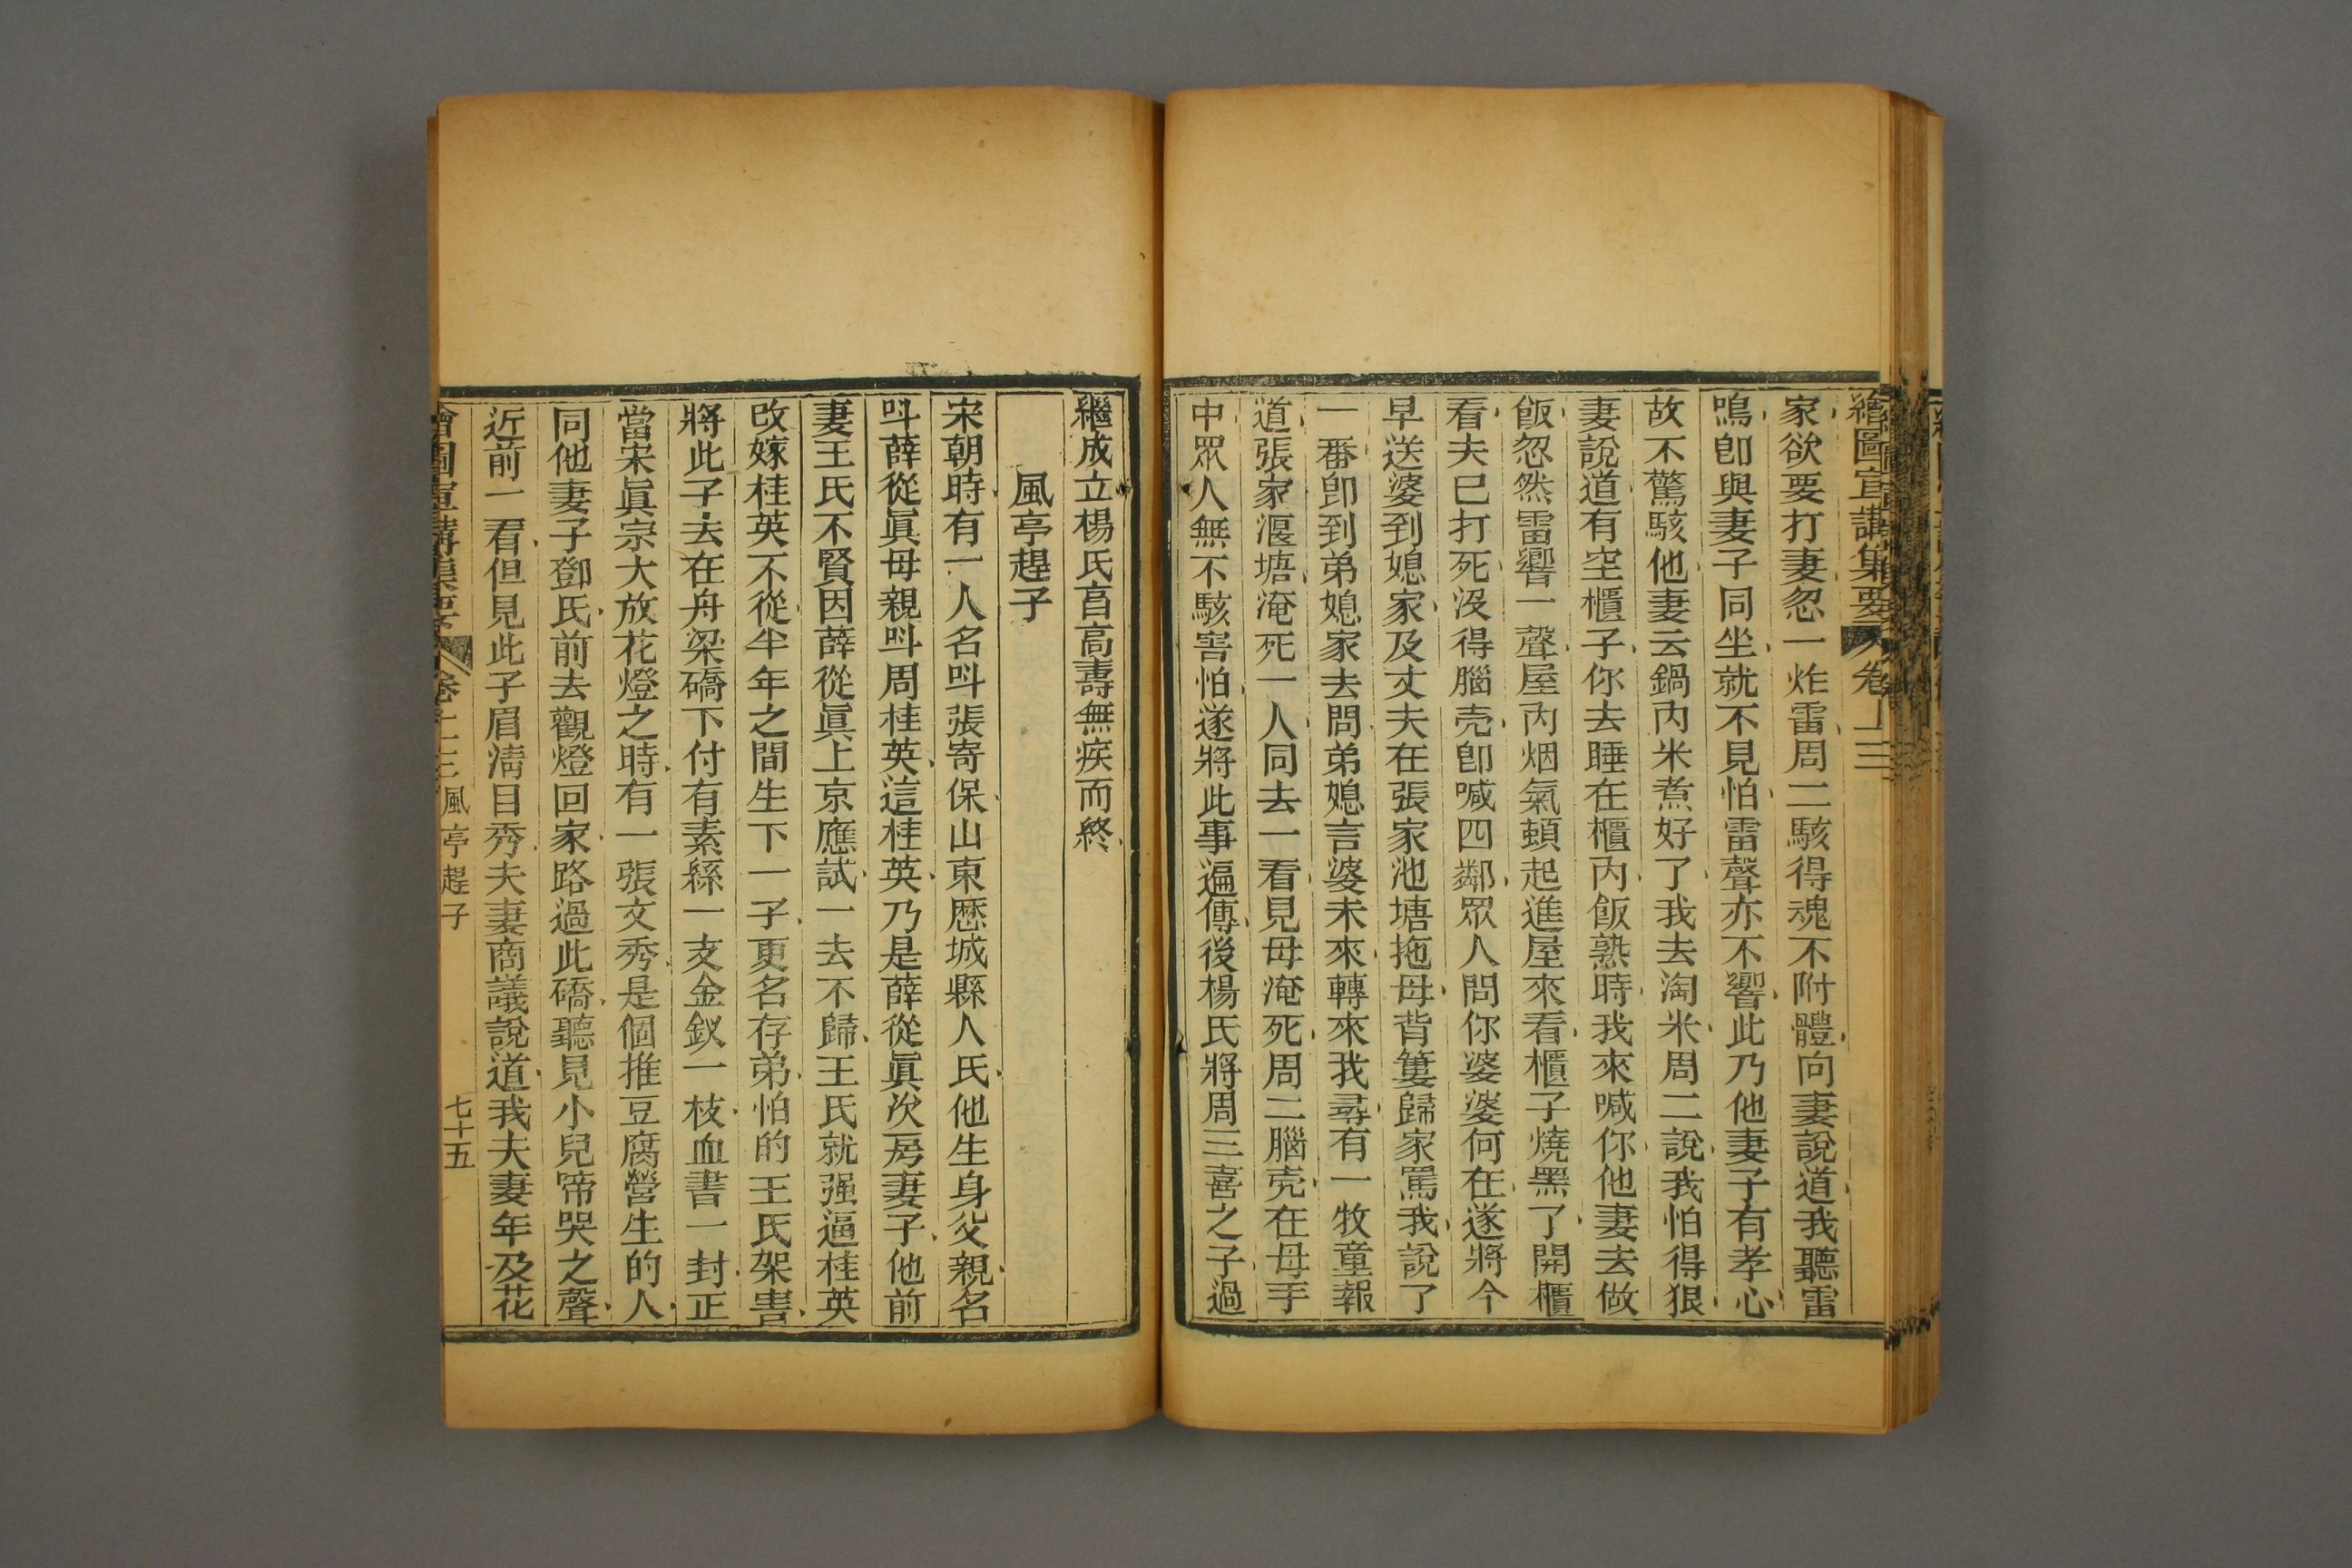 繪圖宣講集要 卷十三
家欲要打妻忽一炸雷周二駭得魂不附體向妻說道我聽雷
鳴卽與妻子同坐就不見怕雷聲亦不響此乃他妻子有孝心
故不驚駭他妻云鍋內米煮好了我去淘米周二說我怕得狠
妻說道有空櫃子你去睡在櫃內飯熟時我來喊你他妻去做
飯忽然雷響一聲屋內烟氣頓起進屋來看櫃子燒黑了開櫃
看夫已打死沒得腦壳卽喊四鄰眾人問你婆婆何在遂將今
早送婆到媳家及丈夫在張家池塘拖母背簍歸家罵我說了
一番卽到弟媳家去問弟媳言婆未來轉來我尋有一牧童報
道張家堰塘淹死一人同去一看見母淹死周二腦壳在母手
中眾人無不駭害怕遂將此事遍傳後楊氏將周三喜之子過
繼成立楊氏享高壽無疾而終
風亭趕子
宋朝時有一人名呌張寄保山東歷城縣人氏他生身父親名
呌薛從眞母親呌周桂英這桂英乃是薛從眞次房妻子他前
妻王氏不賢因薛從眞上京應試一去不歸王氏就强逼桂英
改嫁桂英不從半年之間生下一子更名存弟怕的王氏架害
將此子去在舟梁磽下付有素絲一支金釵一枝血書一封正
當宋眞宗大放花燈之時有一張文秀是個推豆腐營生的人
同他妻子鄧氏前去觀燈回家路過此磽聽見小兒啼哭之聲
近前一看但見此子眉清目秀夫妻商議說道我夫妻年及花
繪圖宣講集要 卷十三 風亭趕子 七十五